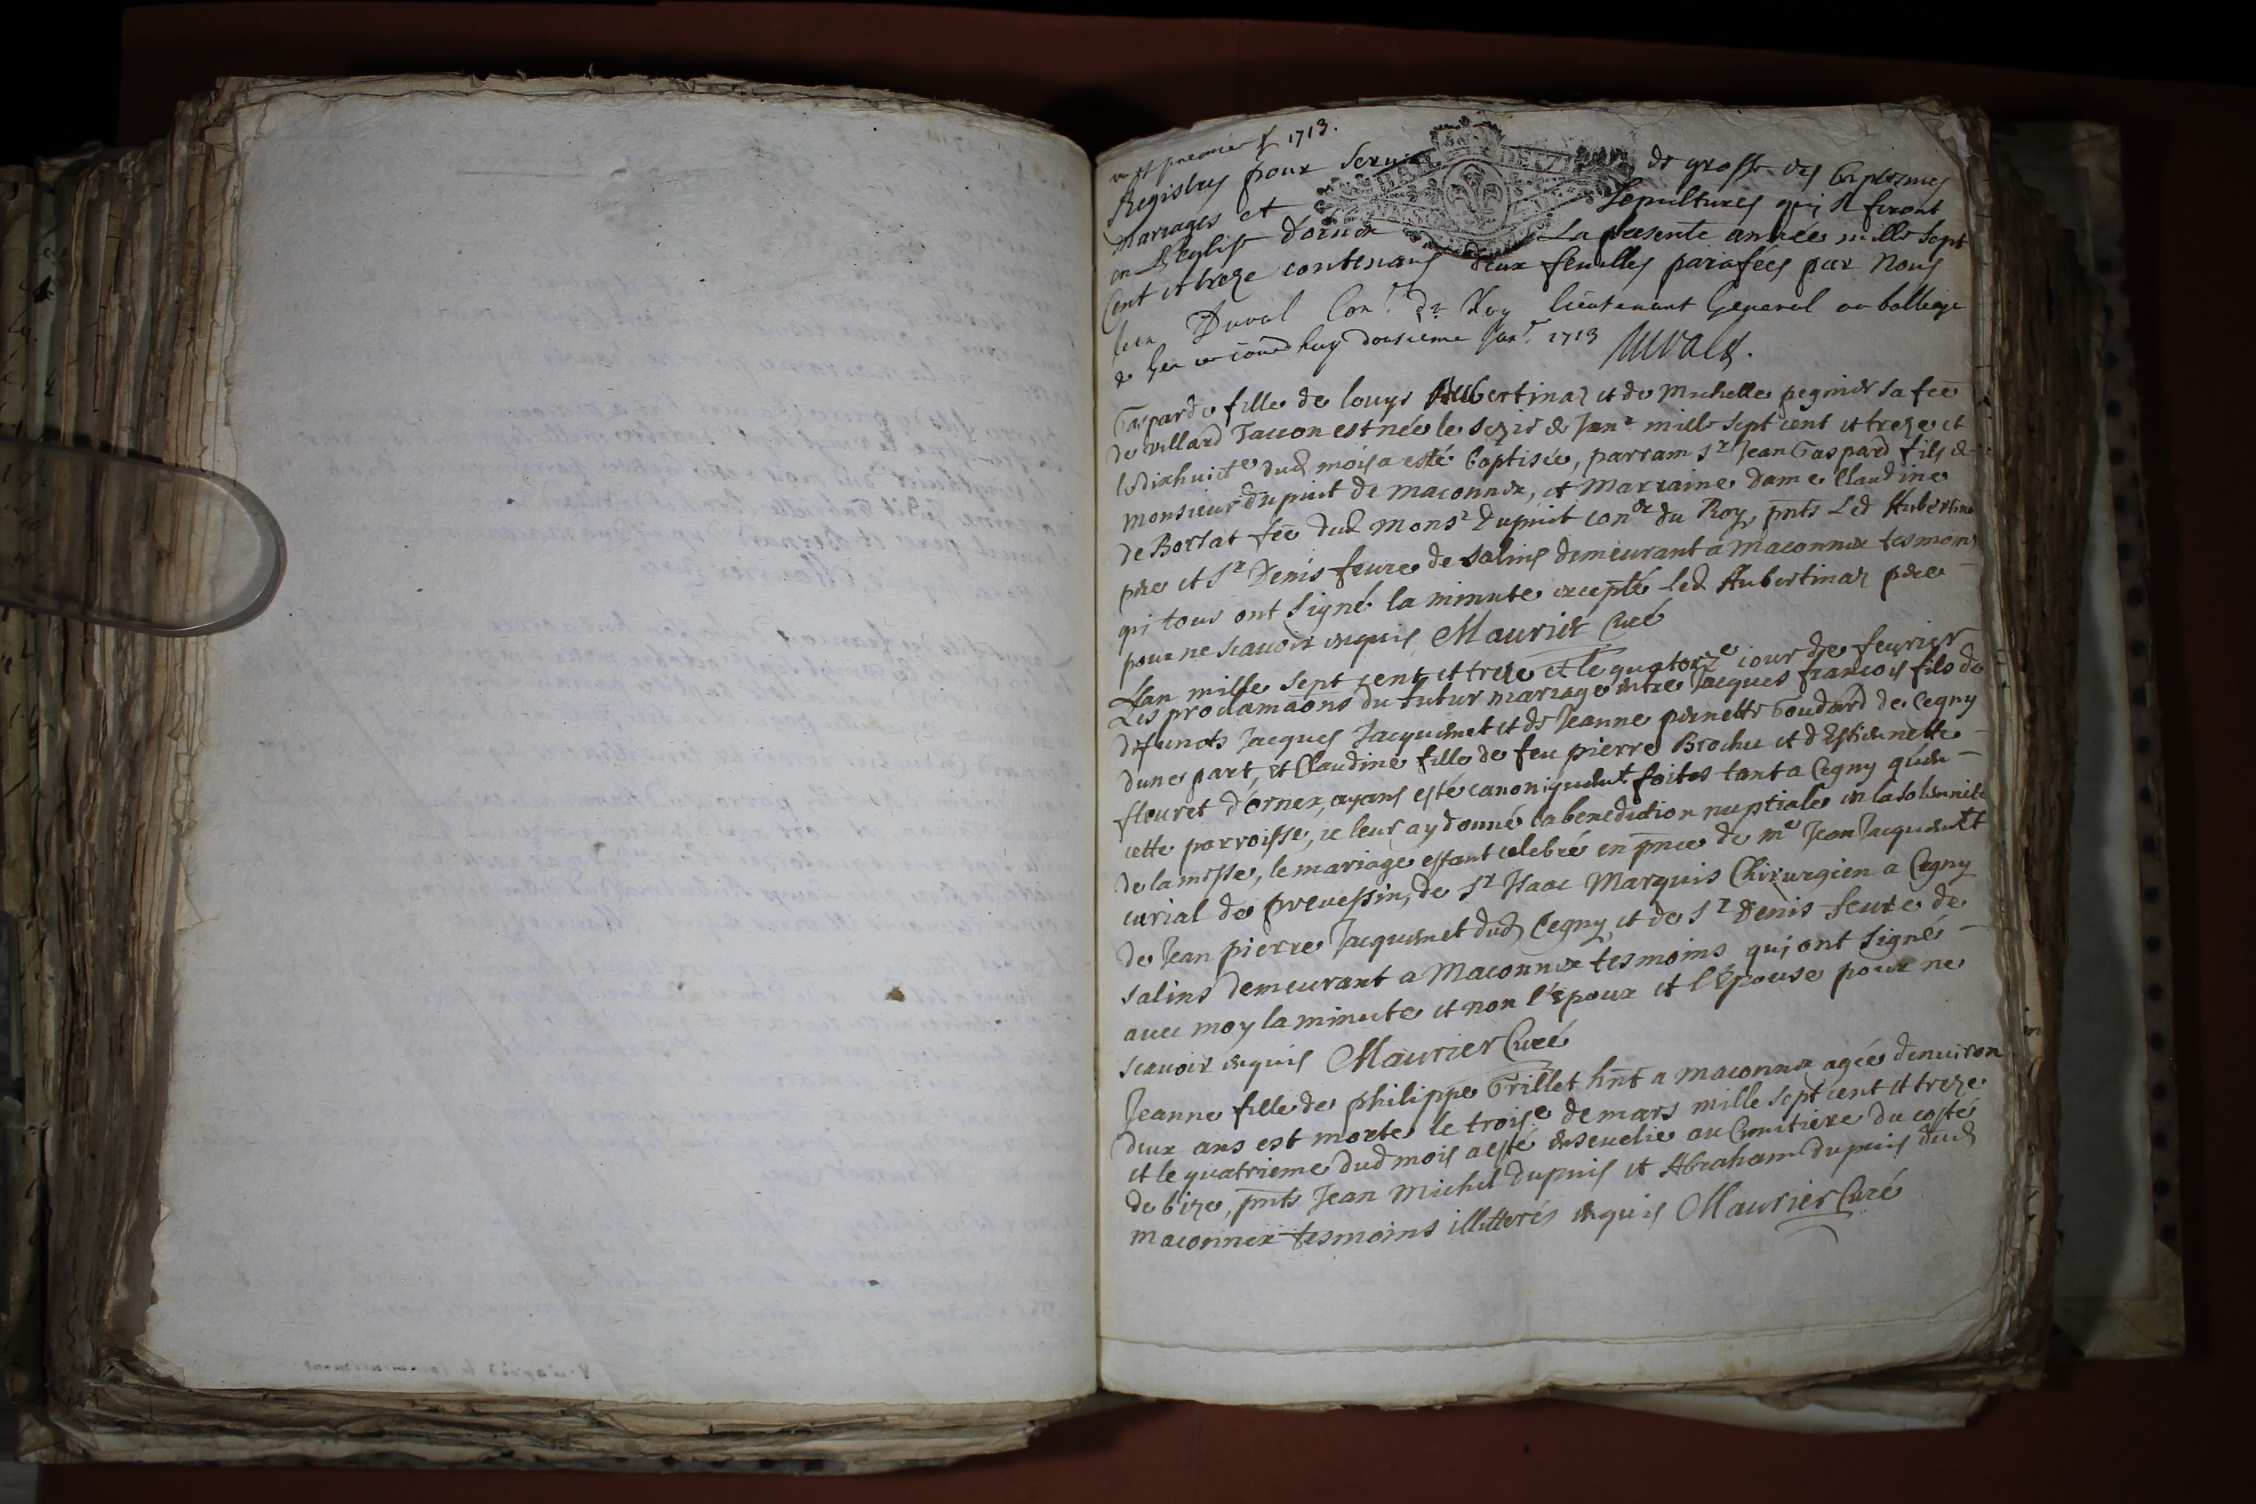 premier f 1713.
Registres pour servir de grosse des baptesmes
mariages et sepultures qui se feront
en L'eglise d'ornex La presente année mille sept
Cent et treze contenans deux feuilles parafées par Nous
Jean Duval Con.r du Roy lieutenant General au balliage
de Gex ce jourdhuy doisieme Jan.r 1713 Duval.
Gasparde fille de louys Aubertinaz et de Michelle peginier sa fee
de villard Taccon est née le sezie de Janr mille sept cent et treze et
le Dixhuicte dud mois a esté baptisée, parrain Sr Jean Gaspard fils de
monsieur Dupuit de maconnex, et Marraine dame Claudine
de Borsat fee dud Monsr Dupuit coner du Roy, pnts Led Aubertina
pere et Sr Denis feure de salins demeurant a maconnex tesmoins
qui tous ont signé la minute excepté led Aubertinaz pere
pour ne scavoir enquis Maurier Curé
L'an mille sept cent et treze et le quatorze jour de feurier
Les proclamaons du futur mariage entre Jacques francois fils de
defuncts Jacques Jacquemet et de Jeanne pernette Goudard de Cegny
d'une part, et Claudine fille de feu pierre Brochu et d'Estiennette
fleuret d'ornex, ayans esté canoniquemt faites tant a Cegny qu'en
cette parroisse, je leur ay donné la benediction nuptiale en la solemnité
de la messe, le mariage estant celebré en pnce de me Jean Jacquemet
curial de prevessin, de Sr Isaac Marquis Chirurgien a Cegny
de Jean pierre Jacquemet dud Cegny et de Sr Denis feure de
salins demeurant a Maconnex tesmoins qui ont signé
avec moy la minute et non l'epoux et l'epouse pour ne
scavoir enquis Maurier Curé
Jeanne fille de philippe Grillet hnt a maconnex agée denuiron
deux ans est morte le troise de mars mille sept cent et treze
et le quatrieme dud mois a esté ensevelie au Cemitiere du costé
de bize, pnts Jean Michel Dupuis et Abraham Dupuis dud
maconnex tesmoins illitterés enquis Maurier Curé